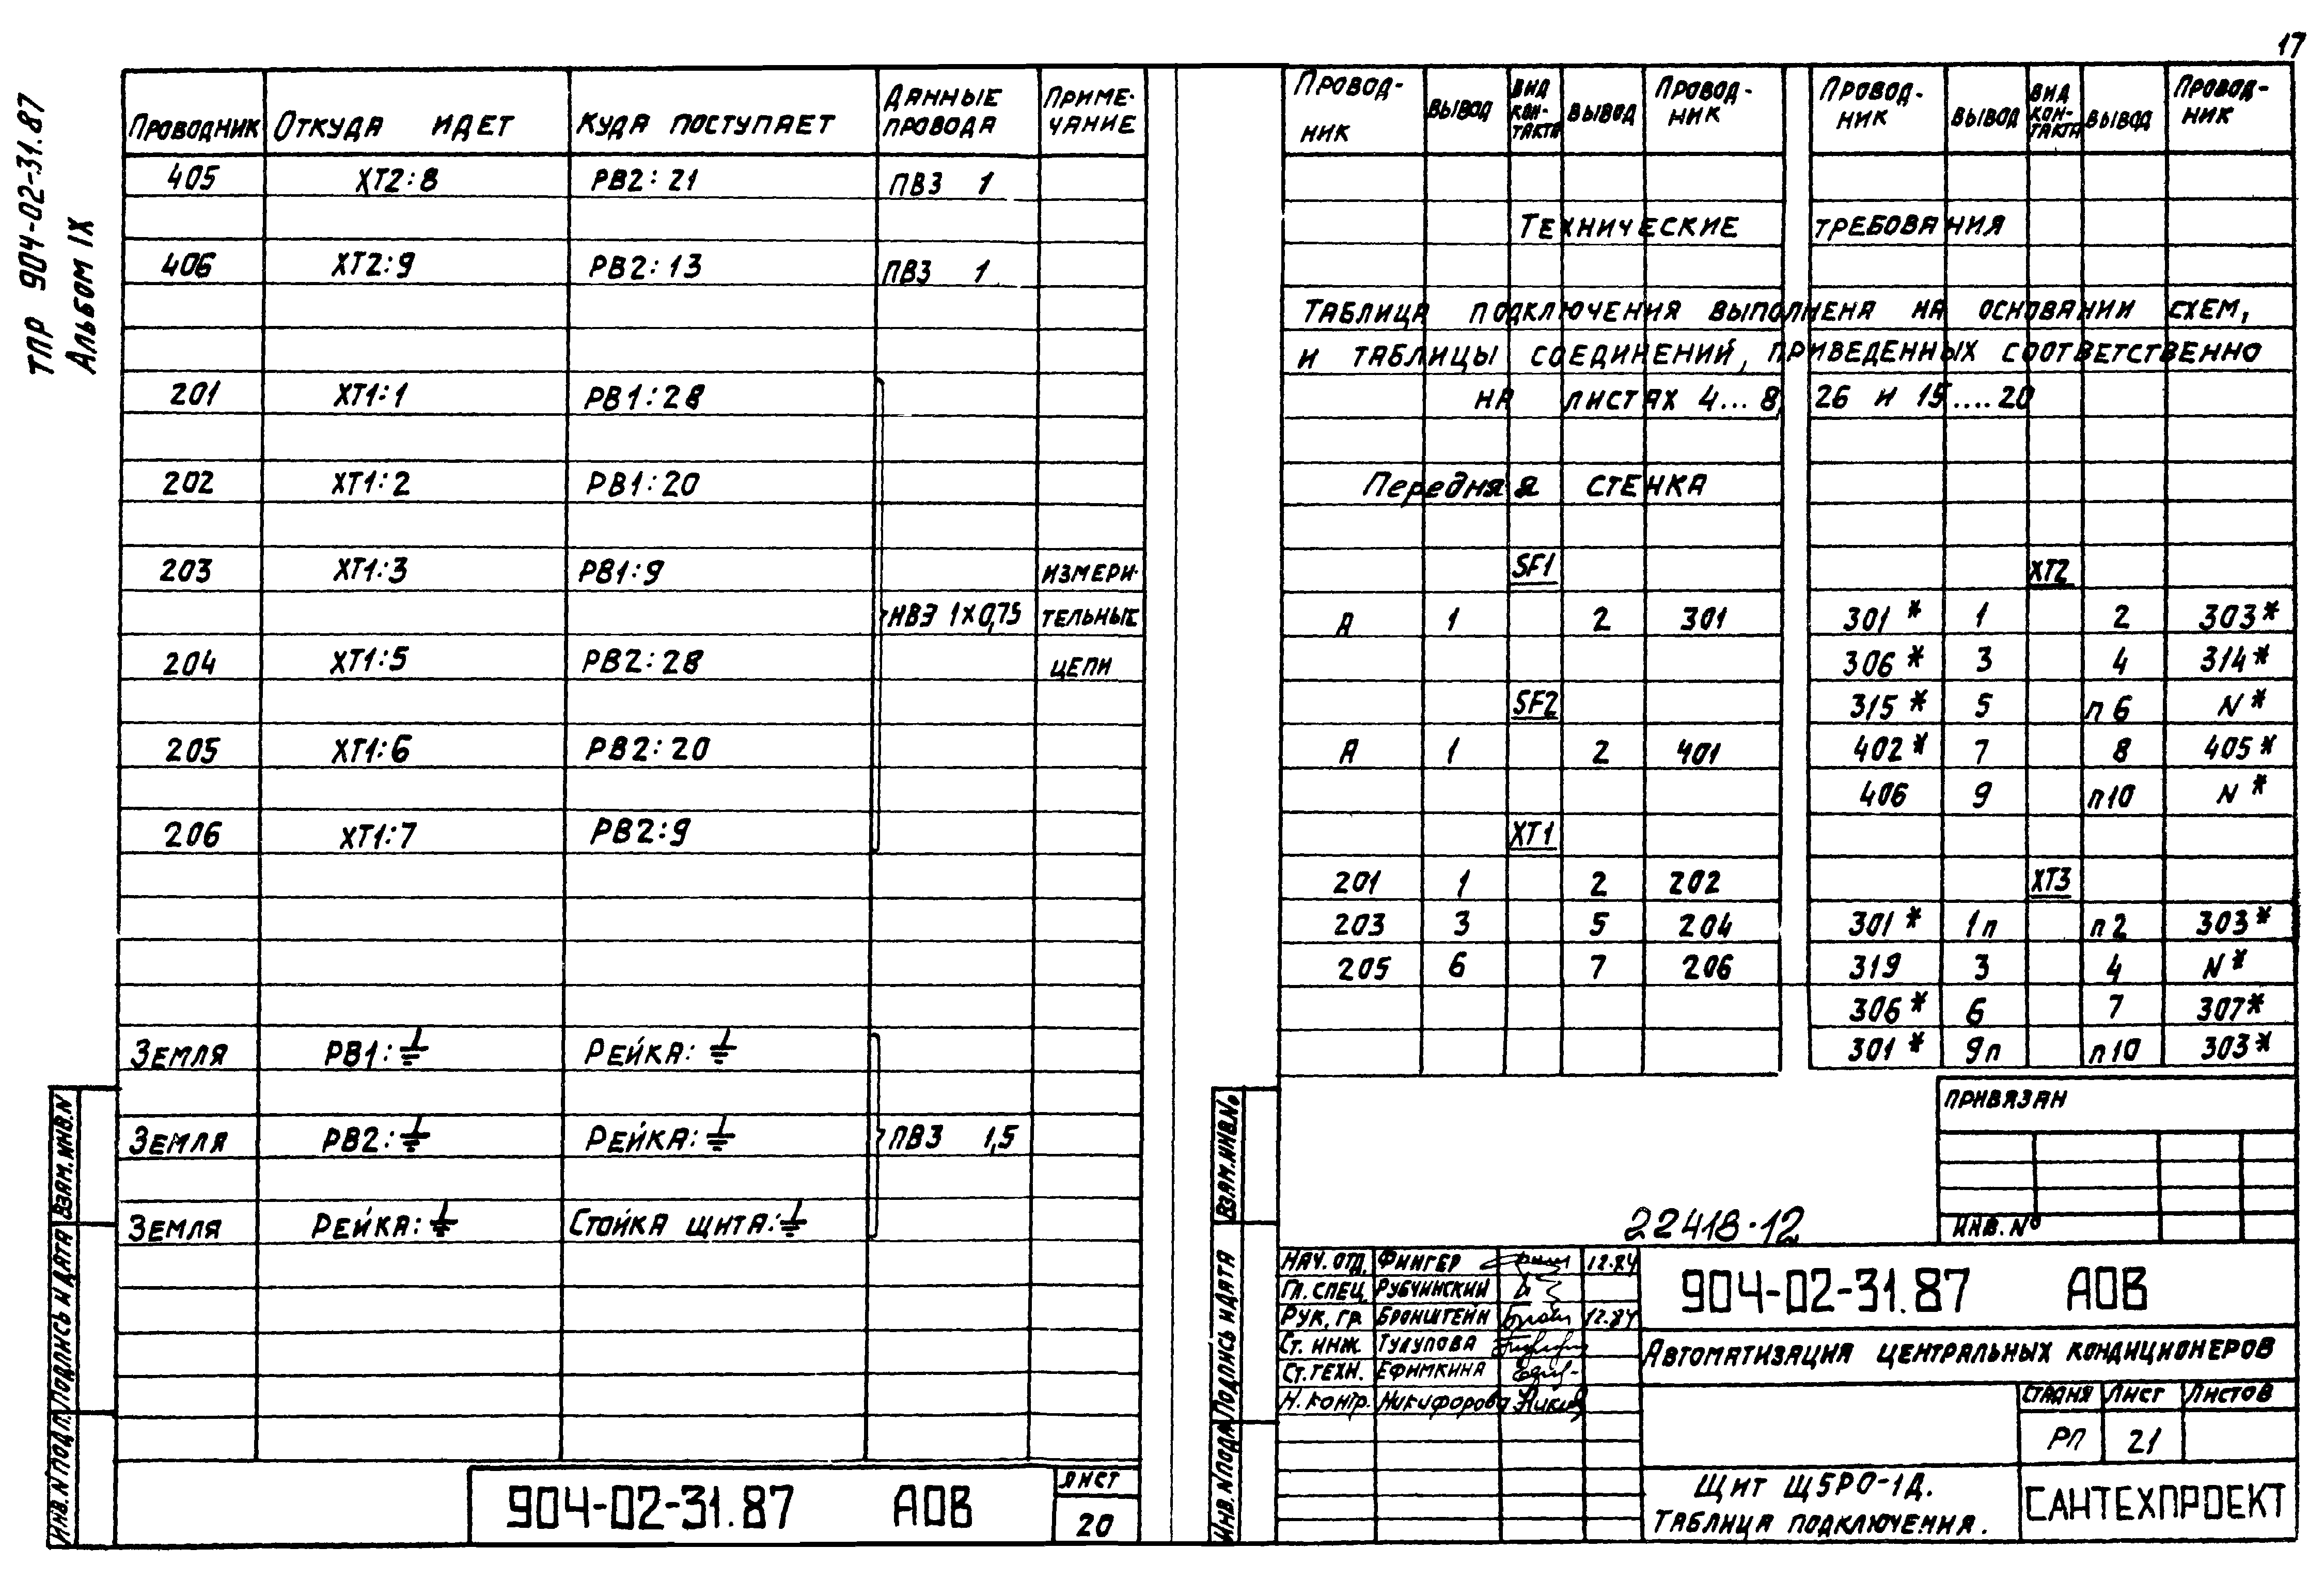 17
ТПР 904-02-31.87
Альбом IX
Проводник Откуда идет Куда поступает Данные провода Приме-чание
405 XT2:8 PB2:21 ПВ3 1
406 XT2:9 PB2:13 ПВ3 1
201 XT1:1 PB1:28
202 XT1:2 PB1:20
203 XT1:3 PB1:9 измери-
НВЭ 1х0,75 тельные
204 XT1:5 PB2:28 цепи
205 XT1:6 PB2:20
206 XT1:7 PB2:9
Земля PB1:⏚ Рейка:⏚
Земля PB2:⏚ Рейка:⏚ ПВ3 1,5
Земля Рейка:⏚ Стойка щита:⏚
904-02-31.87 АОВ
Лист
20
Инв. N подл. Подпись и дата Взам. инв. N
Провод-ник Вывод Вид кон-такта Вывод Провод-ник Провод-ник Вывод Вид кон-такта Вывод Провод-ник
Технические требования
Таблица подключения выполнена на основании схем,
и таблицы соединений, приведенных соответственно
на листах 4...8, 26 и 15....20
Передняя стенка
SF1
А 1 2 301
SF2
А 1 2 401
XT1
201 1 2 202
203 3 5 204
205 6 7 206
XT2
301* 1 2 303*
306* 3 4 314*
315* 5 п6 N*
402* 7 8 405*
406 9 п10 N*
XT3
301* 1п п2 303*
319 3 4 N*
306* 6 7 307*
301* 9п п10 303*
Привязан
Инв. №
22418-12
Нач. отд. Фингер 12.84
Гл. спец. Рубчинский
Рук. гр. Бронштейн 12.84
Ст. инж. Тулупова
Ст. техн. Ефимкина
Н. контр. Никифорова
904-02-31.87 АОВ
Автоматизация центральных кондиционеров
Стадия Лист Листов
РП 21
Щит Щ5РО-1Д.
Таблица подключения.
САНТЕХПРОЕКТ
Инв. N подл. Подпись и дата Взам. инв. №